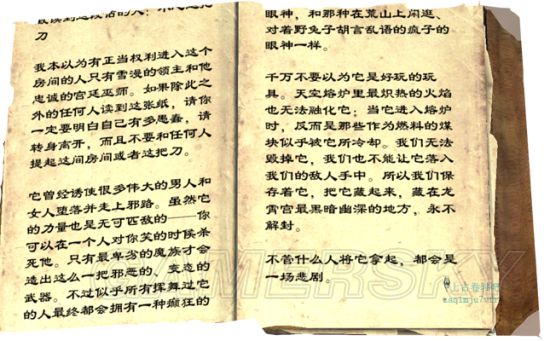 刀
我本以为有正当权利进入这个
房间的人只有雪漫的领主和他
忠诚的宫廷巫师。如果除此之
外的任何人读到这张纸，请你
一定要明白自己有多愚蠢，请
转身离开，而且不要和任何人
提起这间房间或者这把刀。
它曾经诱使很多伟大的男人和
女人堕落并走上邪路。虽然它
的力量也是无可匹敌的——你
可以在一个人对你笑的时候杀
死他。只有最卑劣的魔族才会
造出这么一把邪恶的、变态的
武器。不过似乎所有挥舞过它
的人最终都会拥有一种癫狂的
眼神，和那种在荒山上闲逛、
对着野兔子胡言乱语的疯子的
眼神一样。
千万不要以为它是好玩的玩
具。天空熔炉里最炽热的火焰
也无法融化它；当它进入熔炉
时，反而是那些作为燃料的煤
块似乎被它所冷却。我们无法
毁掉它，我们也不能让它落入
我们的敌人手中。所以我们保
存着它，把它藏起来，藏在龙
霄宫最黑暗幽深的地方，永不
解封。
不管什么人将它拿起，都会是
一场悲剧。
GAMERSKY
上古卷轴吧